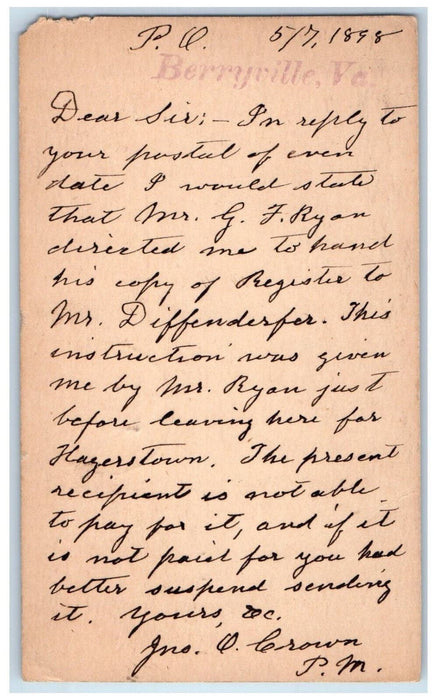 P. O. 5/7, 1898
Berryville, Va.
Dear Sir:- In reply to
your postal of even
date I would state
that Mr. G. F. Ryan
directed me to hand
his copy of Register to
Mr. Diffenderfer. This
instruction was given
me by Mr. Ryan just
before leaving here for
Hagerstown. The present
recipient is not able
to pay for it, and if it
is not paid for you had
better suspend sending
it. Yours, &c.
Jno. O. Crown
P. M.